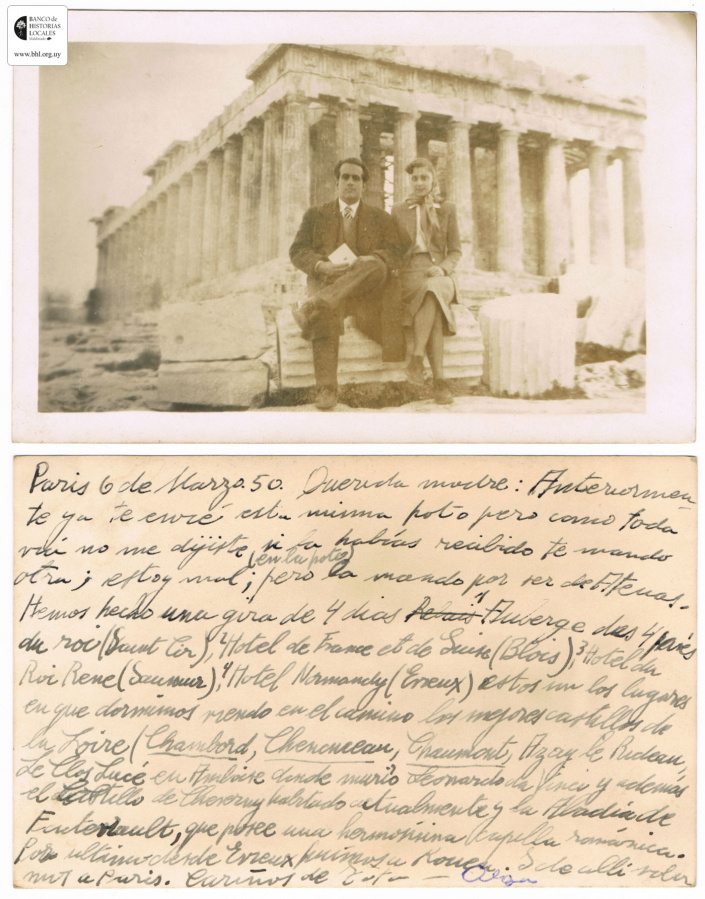 BANCO de
HISTORIAS
LOCALES
www.bhl.org.uy
Paris 6 de Marzo. 50. Querida madre: Anteriormen
te ya te envié esta misma foto pero como toda
vía no me dijiste si la habías recibido te mando
otra; estoy mal (en la foto); pero la mando por ser de Atenas.
Hemos hecho una gira de 4 dias Relais 1 Auberge des 4 pavés
du roi (Saint Cir), 2 Hotel de France et de Suise (Blois), 3 Hotel du
Roi Rene (Saumur), 4 Hotel Normandy (Evreux) estos son los lugares
en que dormimos viendo en el camino los mejores castillos de
la Loire (Chambord, Chenonceau, Chaumont, Azay le Rideau,
Le Clos Lucé en Amboise donde murió Leonardo da Vinci y además
el Castillo de Cheverny habitado actualmente y la Abadía de
Fontevrault, que posee una hermosísima capilla románica.
Por ultimo desde Evreux fuimos a Rouen. Y de alli volvi
mos a Paris. Cariños de